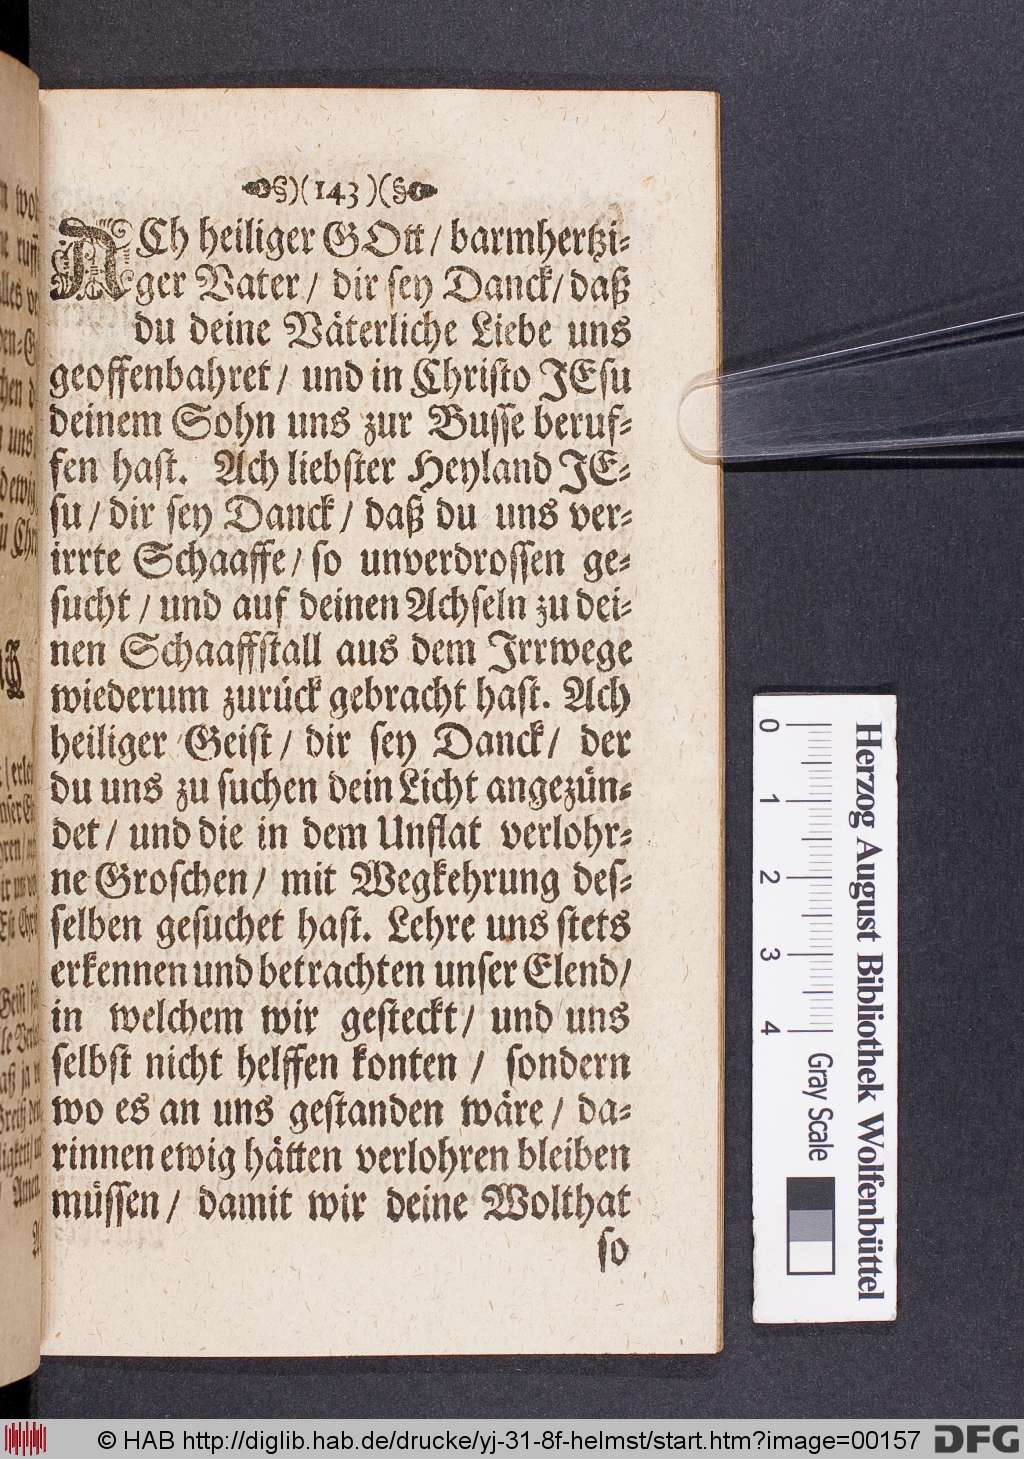 §)(143)(§
ACh heiliger GOtt/ barmhertzi-
ger Vater/ dir sey Danck/ daß
du deine Väterliche Liebe uns
geoffenbahret/ und in Christo JEsu
deinem Sohn uns zur Busse beruf-
fen hast. Ach liebster Heyland JE-
su/ dir sey Danck/ daß du uns ver-
irrte Schaaffe/ so unverdrossen ge-
sucht/ und auf deinen Achseln zu dei-
nen Schaaffstall aus dem Irrwege
wiederum zurück gebracht hast. Ach
heiliger Geist/ dir sey Danck/ der
du uns zu suchen dein Licht angezün-
det/ und die in dem Unflat verlohr-
ne Groschen/ mit Wegkehrung des-
selben gesuchet hast. Lehre uns stets
erkennen und betrachten unser Elend/
in welchem wir gesteckt/ und uns
selbst nicht helffen konten/ sondern
wo es an uns gestanden wäre/ da-
rinnen ewig hätten verlohren bleiben
müssen/ damit wir deine Wolthat
so
Herzog August Bibliothek Wolfenbüttel
0 1 2 3 4 Gray Scale
© HAB http://diglib.hab.de/drucke/yj-31-8f-helmst/start.htm?image=00157
DFG